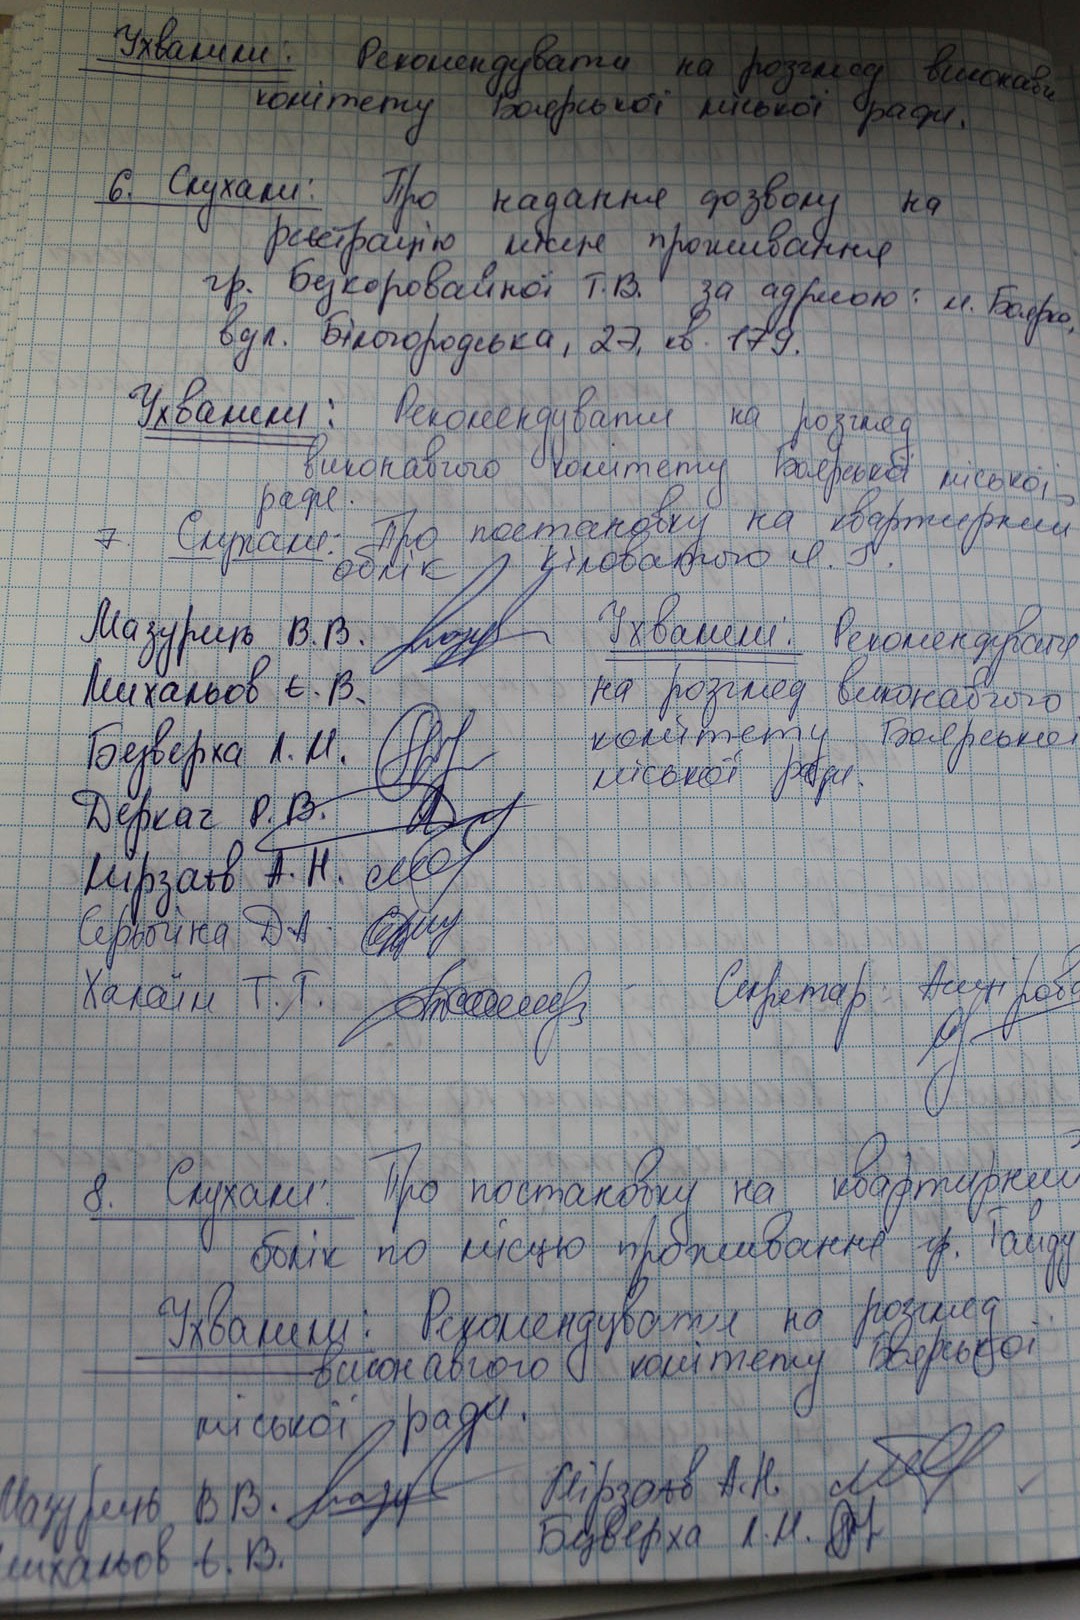 Ухвалили: Рекомендувати на розгляд виконавч
комітету Боярської міської ради.
6. Слухали: Про надання дозволу на
реєстрацію місце проживання
гр. Безкоровайної Т.В. за адресою: м. Боярка,
вул. Білогородська, 27, кв. 179.
Ухвалили: Рекомендувати на розгляд
виконавчого комітету Боярської міської
ради.
7. Слухали: Про постановку на квартирний
облік Кіловатого Я. Г.
Мазурець В.В.
Михальов Є. В.
Безверха Л.М.
Деркач Р.В.
Мірзаєв А.Н.
Серьогіна Д.А.
Халаїм Т.Т.
Ухвалили: Рекомендувати
на розгляд виконавчого
комітету Боярської
міської ради.
Секретар:
8. Слухали: Про постановку на квартирний
облік по місцю проживання гр. Гайду
Ухвалили: Рекомендувати на розгляд
виконавчого комітету Боярської
міської ради.
Мазурець В В.
Михальов Є. В.
Мірзаєв А.Н.
Безверха Л.М.